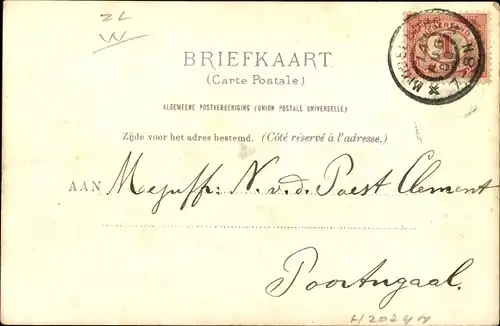 ZL
W
BRIEFKAART
(Carte Postale)
ALGEMEENE POSTVEREENIGING (UNION POSTALE UNIVERSELLE)
Zijde voor het adres bestemd. (Côté réservé à l'adresse.)
AAN Mejuffr: N. v. d. Poest Clement
Poortugaal.